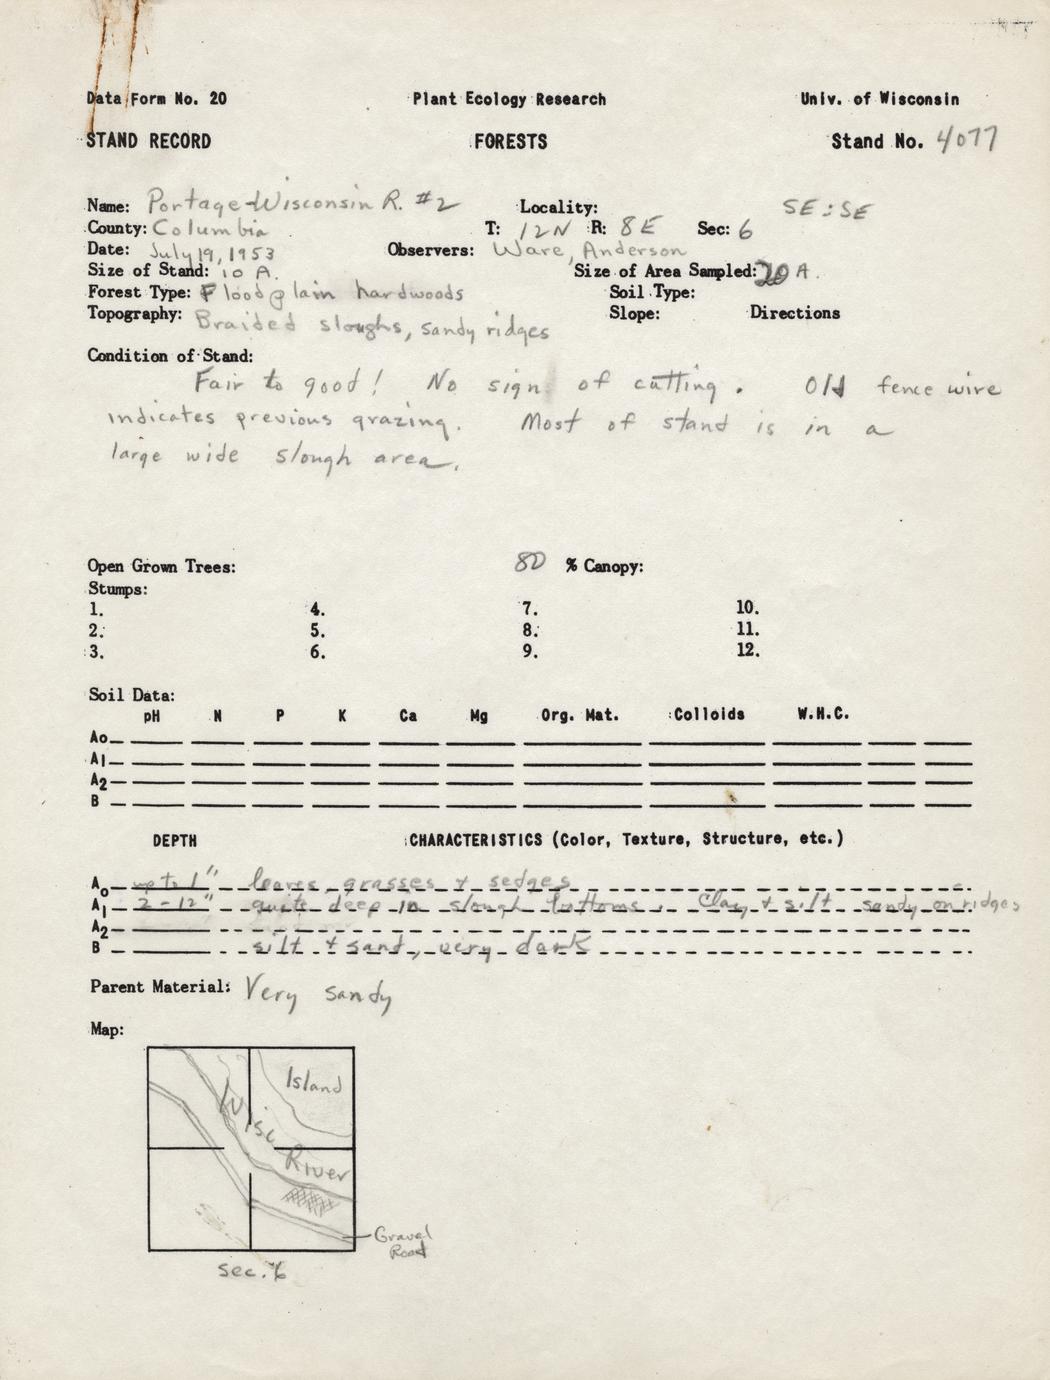 Data Form No. 20 Plant Ecology Research Univ. of Wisconsin
STAND RECORD FORESTS Stand No. 4077
Name: Portage-Wisconsin R. #2 Locality: SE:SE
County: Columbia T: 12N R: 8E Sec: 6
Date: July 19, 1953 Observers: Ware, Anderson
Size of Stand: 10 A. Size of Area Sampled: 20 A.
Forest Type: Floodplain hardwoods Soil Type:
Topography: Braided sloughs, sandy ridges Slope: Directions
Condition of Stand:
Fair to good! No sign of cutting. Old fence wire
indicates previous grazing. Most of stand is in a
large wide slough area.
Open Grown Trees: 80 % Canopy:
Stumps:
1. 4. 7. 10.
2. 5. 8. 11.
3. 6. 9. 12.
Soil Data:
pH N P K Ca Mg Org. Mat. Colloids W.H.C.
Ao
A1
A2
B
DEPTH CHARACTERISTICS (Color, Texture, Structure, etc.)
Ao up to 1" leaves, grasses & sedges
A1 2-12" quite deep in slough bottoms. Clay & silt sandy on ridges
A2
B silt & sand, very dark
Parent Material: Very sandy
Map:
Island
Wisc River
Gravel
Road
sec. 6